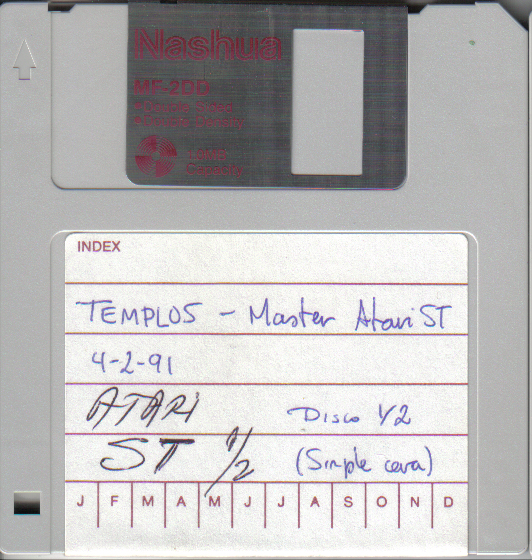 Nashua
MF-2DD
Double Sided
Double Density
1.0MB
Capacity
INDEX
TEMPLOS - Master Atari ST
4-2-91
ATARI Disco 1/2
ST 1/2 (Simple cara)
J F M A M J J A S O N D